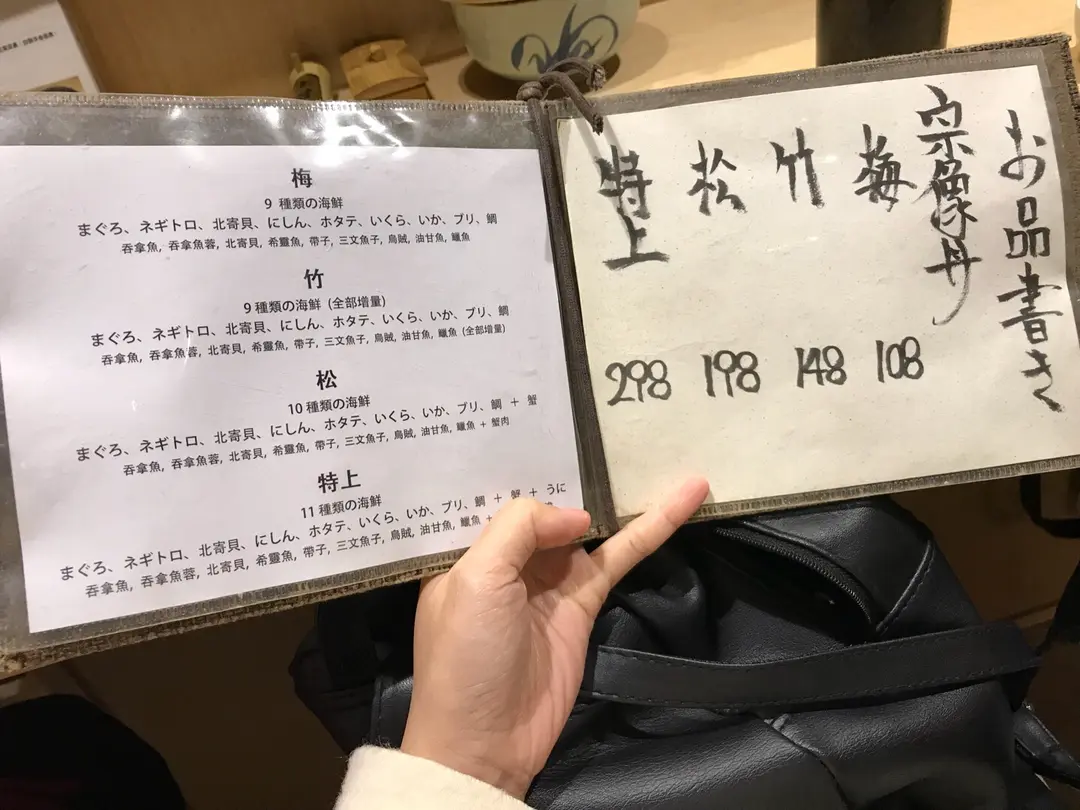 梅
9 種類の海鮮
まぐろ、ネギトロ、北寄貝、にしん、ホタテ、いくら、いか、ブリ、鯛
吞拿魚, 吞拿魚蓉, 北寄貝, 希靈魚, 帶子, 三文魚子, 烏賊, 油甘魚, 鱲魚
竹
9 種類の海鮮 (全部增量)
まぐろ、ネギトロ、北寄貝、にしん、ホタテ、いくら、いか、ブリ、鯛
吞拿魚, 吞拿魚蓉, 北寄貝, 希靈魚, 帶子, 三文魚子, 烏賊, 油甘魚, 鱲魚 (全部增量)
松
10 種類の海鮮
まぐろ、ネギトロ、北寄貝、にしん、ホタテ、いくら、いか、ブリ、鯛 + 蟹
吞拿魚, 吞拿魚蓉, 北寄貝, 希靈魚, 帶子, 三文魚子, 烏賊, 油甘魚, 鱲魚 + 蟹肉
特上
11 種類の海鮮
まぐろ、ネギトロ、北寄貝、にしん、ホタテ、いくら、いか、ブリ、鯛 + 蟹 + うに
吞拿魚, 吞拿魚蓉, 北寄貝, 希靈魚, 帶子, 三文魚子, 烏賊, 油甘魚, 鱲魚 +
お品書き
宗像丼
梅 108
竹 148
松 198
特上 298